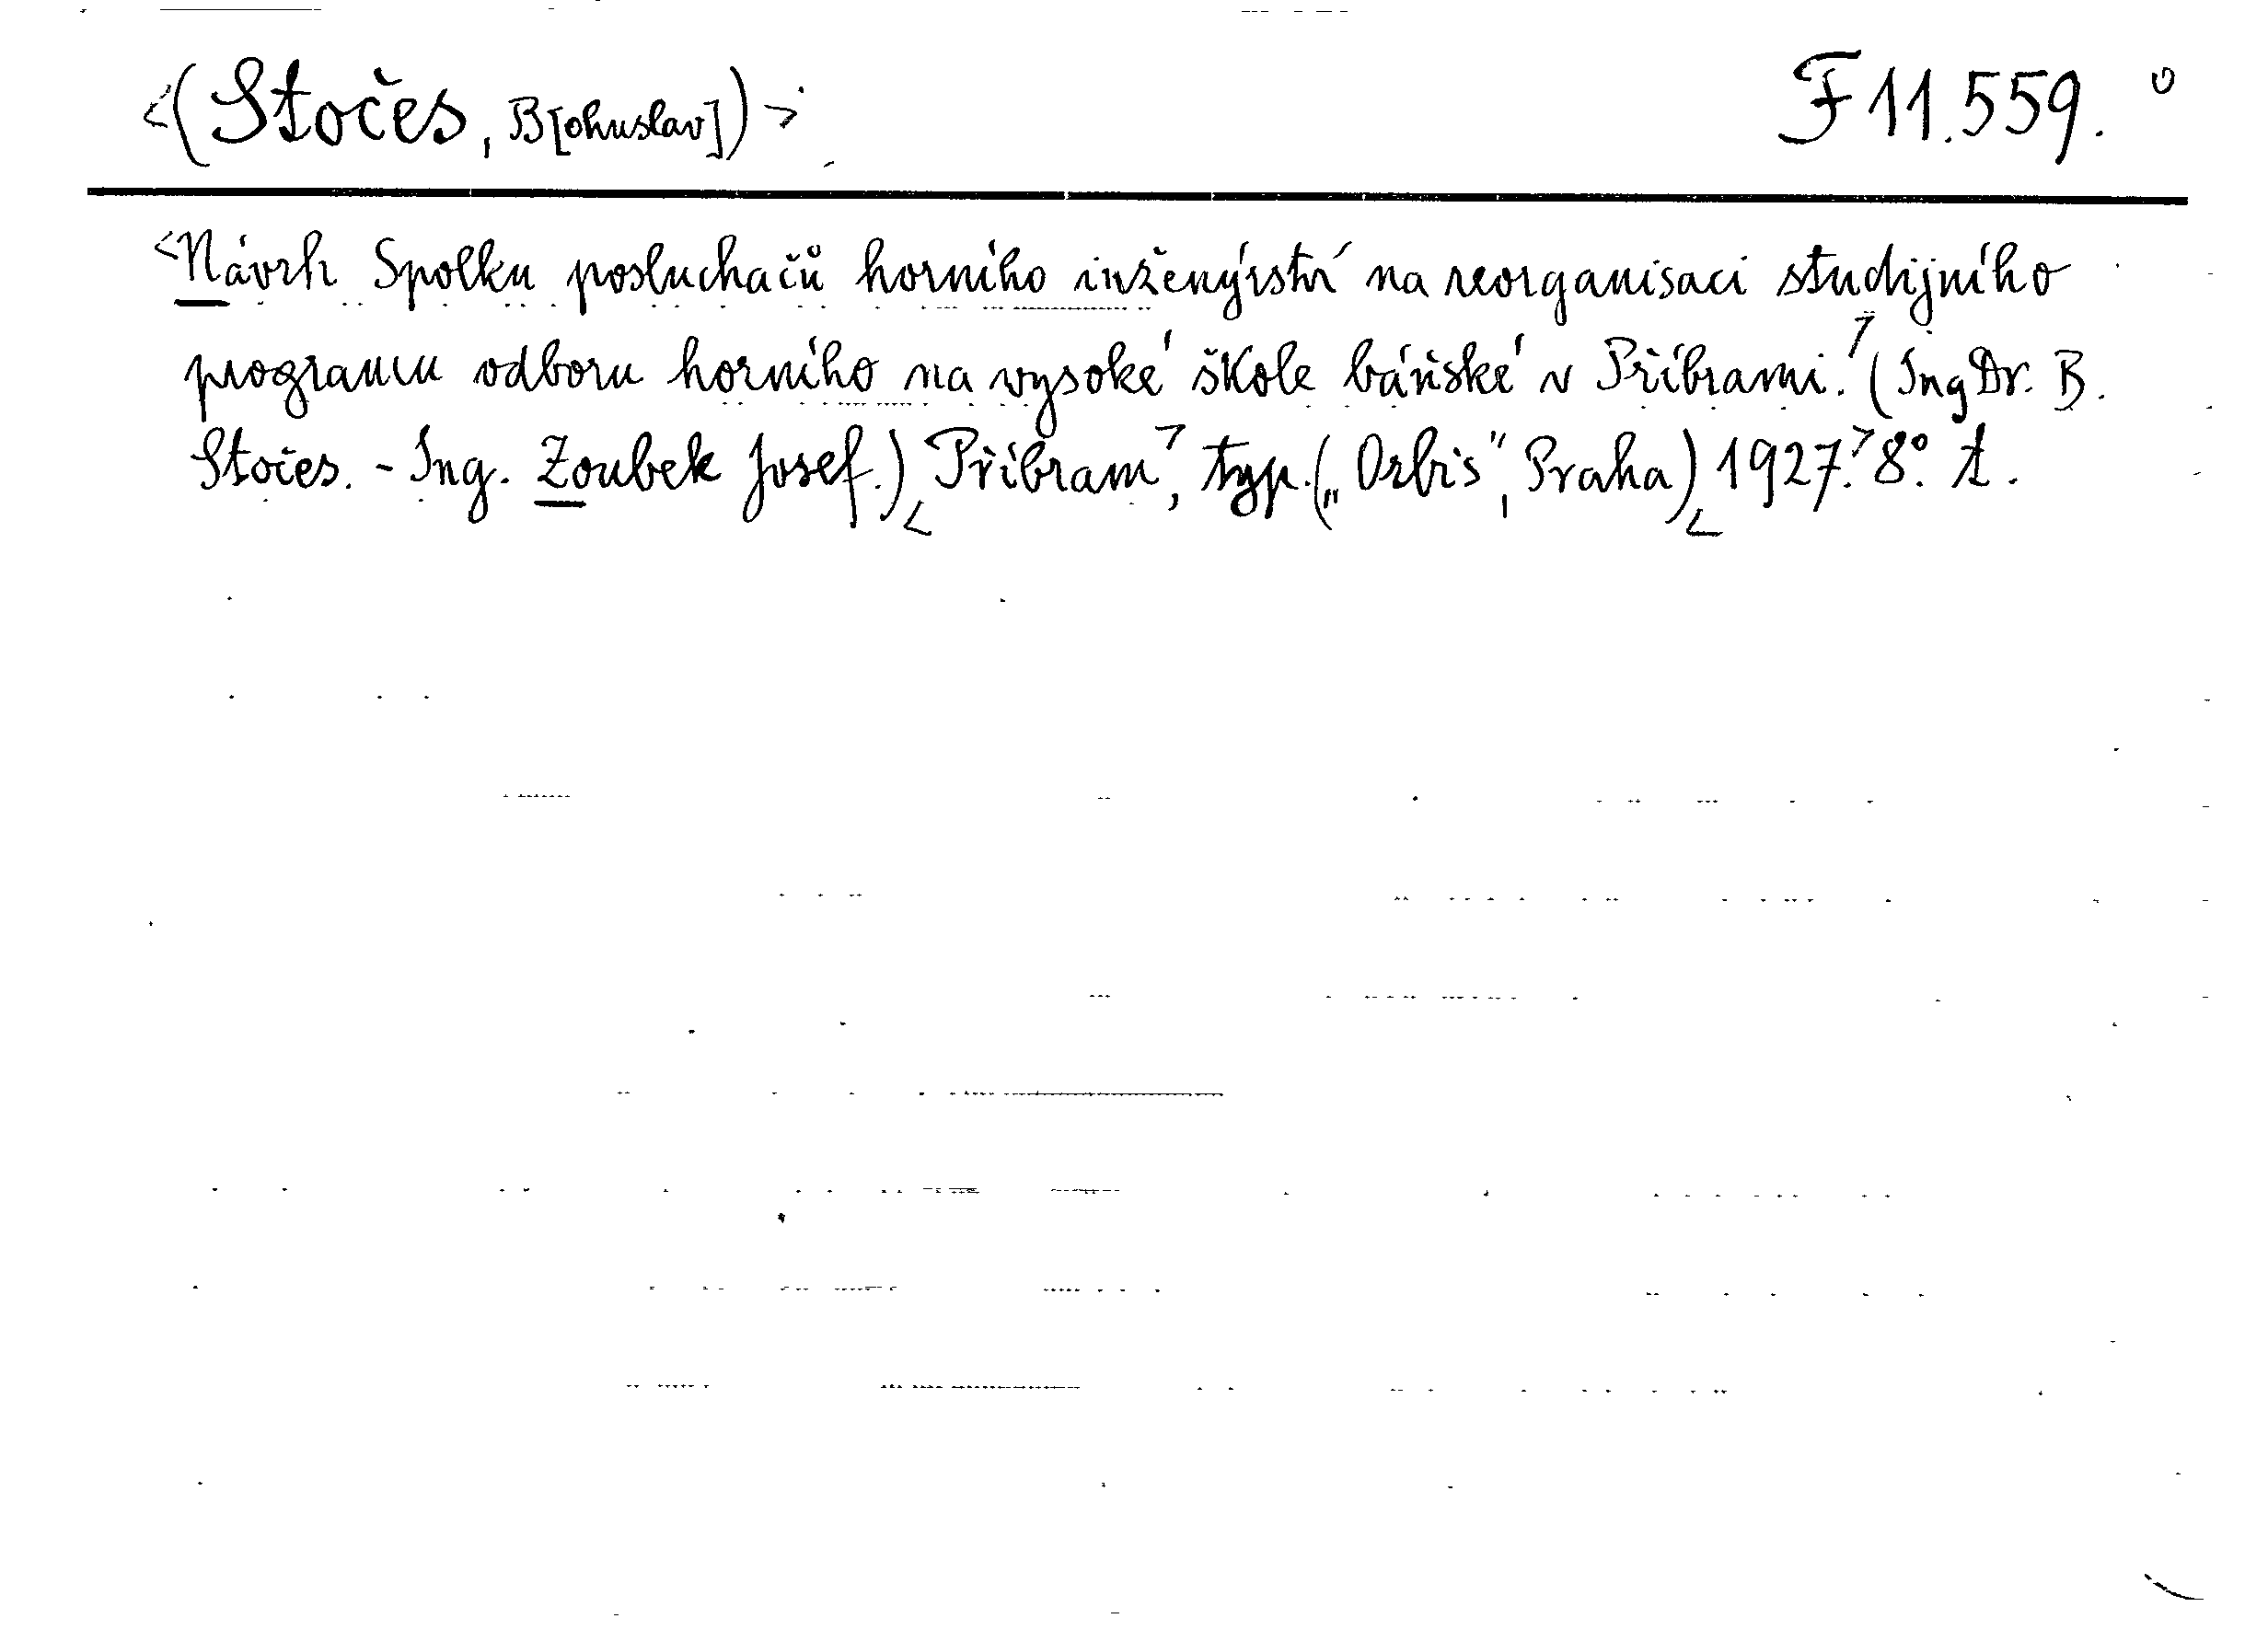 <(Stočes, B[ohuslav])> F 11.559. o
<Návrh Spolku posluchačů horního inženýrství na reorganisaci studijního
programu odboru horního na vysoké škole báňské v Příbrami.> (Ing Dr. B.
Stočes. - Ing. Zoubek Josef.) <Příbram>, typ. („Orbis", Praha) <1927.> 8°. t.